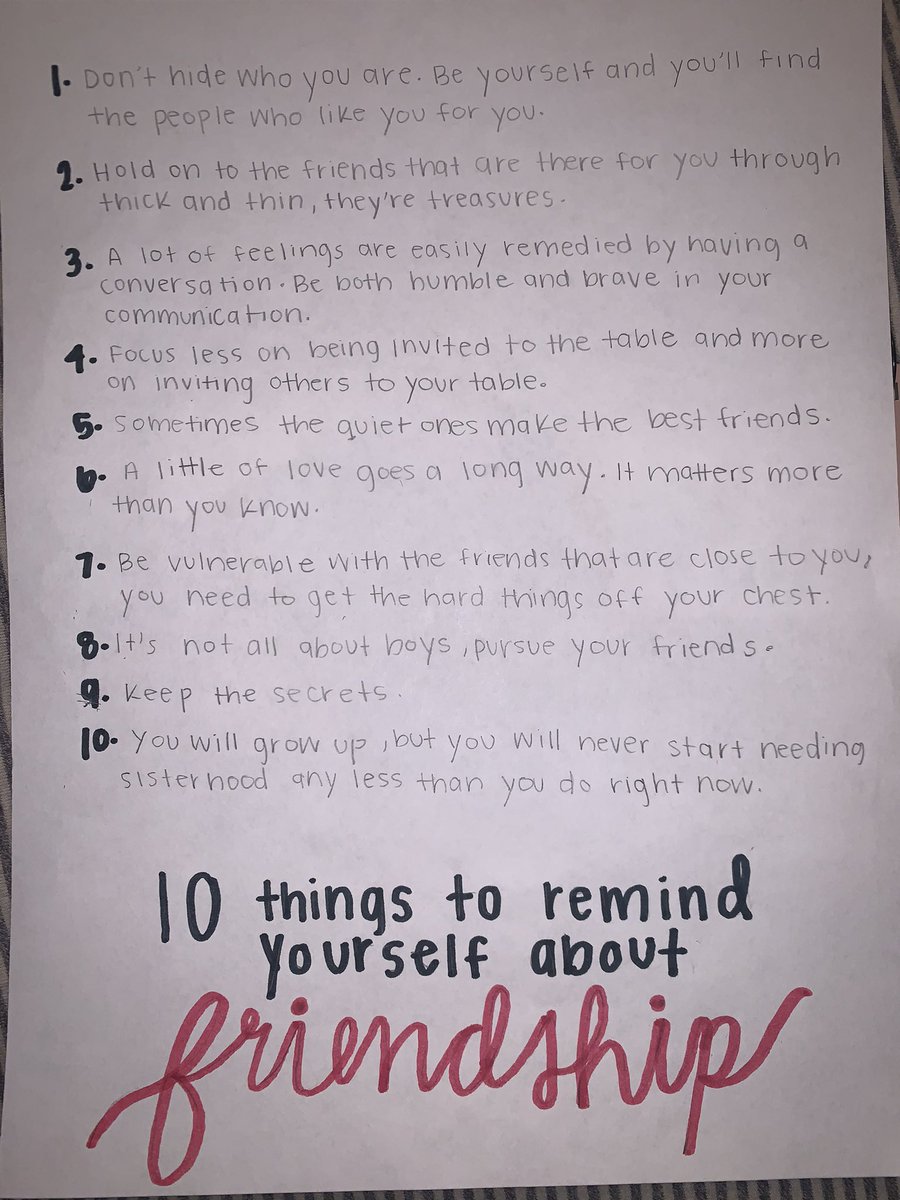 1. Don't hide who you are. Be yourself and you'll find
the people who like you for you.
2. Hold on to the friends that are there for you through
thick and thin, they're treasures.
3. A lot of feelings are easily remedied by having a
conversation. Be both humble and brave in your
communication.
4. Focus less on being invited to the table and more
on inviting others to your table.
5. Sometimes the quiet ones make the best friends.
6. A little of love goes a long way. It matters more
than you know.
7. Be vulnerable with the friends that are close to you,
you need to get the hard things off your chest.
8. It's not all about boys, pursue your friends.
9. Keep the secrets.
10. You will grow up, but you will never start needing
sisterhood any less than you do right now.
10 things to remind
yourself about
friendship